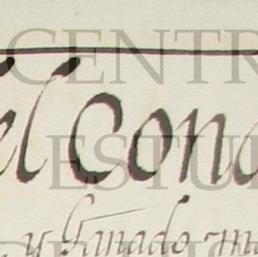 CENTR
el Cond
ESTU
y Ganado ma